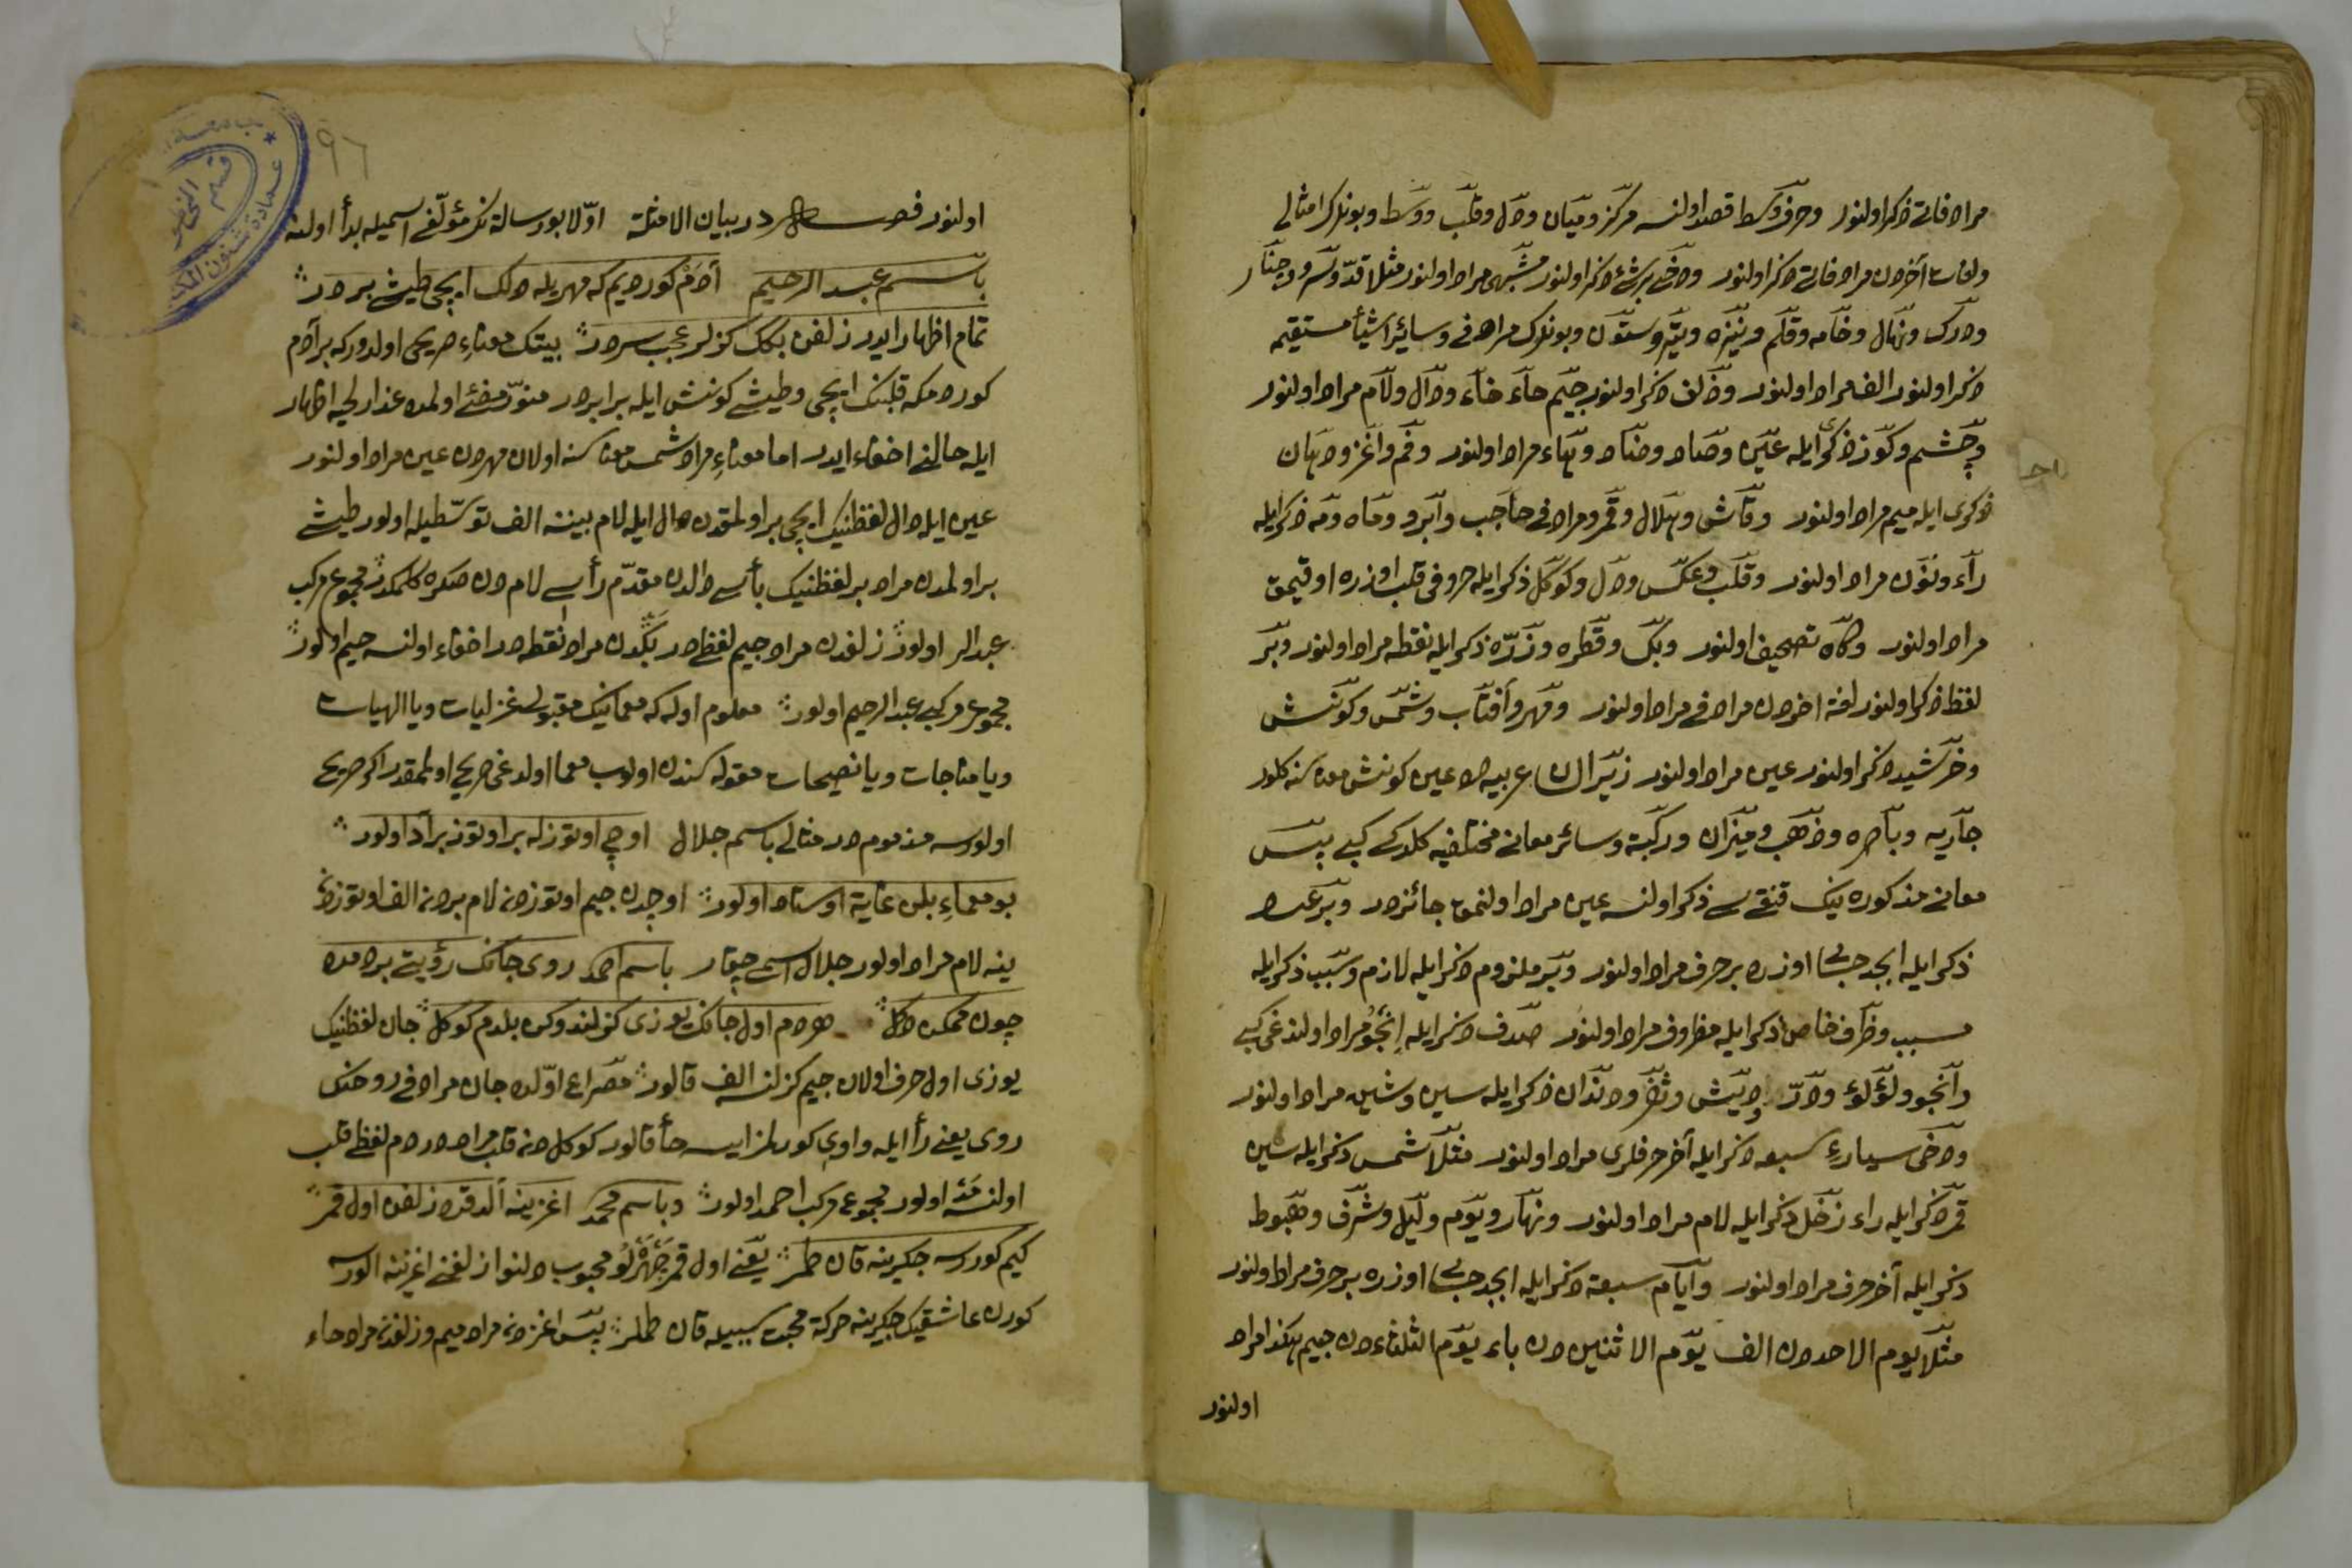 مرادفاتى ذكر اولنور وحرف وسط قصد اولنسه مركز وميان ودل وقلب ووسط وبونلرك امثالى
ولغات آخردن مرادفاتى ذكر اولنور ودخى بر شئ ذكر اولنور مشبهى مراد اولنور مثلا قد وسرو وچنار
ودرك ونهال وخامه وقلم ونيزه وتير وستون وبونلرك مرادفى وسائر اشيأ مستقيمه
ذكر اولنور الف مراد اولنور وزلف ذكر اولنور جيم حاء خاء ودال ولام مراد اولنور
وچشم وكوز ذكرى ايله عين وصاد وضاد وهاء مراد اولنور وفم واغز ودهان
ذكرى ايله ميم مراد اولنور وقاش وهلال وقمر ومرادفى حاجب وابرو وماه ومه ذكر ايله
راء ونون مراد اولنور وقلب وعكس ودل وكوكل ذكر ايله حروفى قلب اوزره اوقيمق
مراد اولنور وكاه تصحيف اولنور وبك وقطره وذره ذكر ايله نقطه مراد اولنور وبر
لفظ ذكر اولنور لغة اخردن مرادفى مراد اولنور ومهر وآفتاب وشمس وكونش
وخرشيد ذكر اولنور عين مراد اولنور زيرا لسان عربيه ده عين كونش معناسنه كلور
جاريه وباصره وذهب وميزان وركبة وسائر معانى مختلفيه كلدكى كبى پس
معانى مذكوره نيك قنقيسى ذكر اولنسه عين مراد اولنمق جائزدر وبر عدد
ذكر ايله ابجد حسابى اوزره بر حرف مراد اولنور وبر ملزوم ذكر ايله لازم وسبب ذكر ايله
مسبب وظرف خاص ذكر ايله مظروف مراد اولنور صدف ذكر ايله إنجو مراد اولندغى كبى
وانجو ولؤلؤ ودر وديش وثغر ودندان ذكر ايله سين وشين مراد اولنور
ودخى سيارهٔ سبعه ذكر ايله آخر حرفلرى مراد اولنور مثلا شمس ذكر ايله سين
قمر ذكر ايله راء زحل ذكر ايله لام مراد اولنور ونهار ويوم وليل وشرف وهبوط
ذكر ايله آخر حرف مراد اولنور وايام سبعة ذكر ايله ابجد حسابى اوزره بر حرف مراد اولنور
مثلا يوم الاحددن الف يوم الاثنيندن باء يوم الثلثاءدن جيم هكذا مراد
اولنور
٩٦
اولنور فصل در بيان الامثلة اولا بو رسالة نك مؤلفى اسميله بدأ اولنه
باسم عبد الرحيم آدم كورديم كه مهريله دلك ايچى طيشى بردر
تمام اظهار ايدر زلفن بكك كزلر عجب سردر بيتك معناء صريحى اولدوركه بر آدم
كوردمكه قلبنك ايچى وطيشى كونش ايله برابردر منور مضئ اولمده عذار لحيه اظهار
ايله حالنى اخفاء ايدر اما معناء مراد شمس معناسنه اولان مهردن عين مراد اولنور
عين ايله دال لفظنيك ايچى بر اولمقدن دال ايله لام بيننه الف توسطيله اولور طيشى
بر اولمدن مراد بر لفظنيك بأسى دالدن مقدم رأسى لامدن صكره كلمكدر مجموع مركب
عبد الر اولور زلفدن مراد جيم لفظىدر بكدن مراد نقطه در اخفاء اولنسه حيم اولور
مجموع مركبى عبد الرحيم اولور معلوم اوله كه معمانيك مقبولى غزليات ويا الهيات
ويا مناجات ويا نصيحات مقوله سندن اولوب معما اولدغى صريح اولمقدر اكر صريح
اولورسه مذمومدر مثالى باسم جلال اوچى اوتوزله بر اوتوز بر آد اولور
بو معماء بلن غاية اوستاد اولور اوچدن جيم اوتوزدن لام بردن الف اوتوزدن
ينه لام مراد اولور جلال اسمى چيقار باسم احمد روى جانك رؤيتى بر دمده
چون ممكن دكل هر دم اول جانك يوزى كزلندوكن بلدم كوكل جان لفظنيك
يوزى اول حرف اولان جيم كزلنسه الف قالور مصراع اولده جان مرادفى روحك
روى يعنى رأ ايله واوى كورلمز ايسه حأ قالور كوكلدن قلب مراددر دم لفظى قلب
اولنسه مد اولور مجموع مركب احمد اولور وباسم محمد اغزينه آلدقده زلفن اول قمر
كيم كورسه جكرينه قان طمر يعنى اول قمر چهرهلو محبوب دلنواز زلفنى اغزينه الورسه
كورن عاشقيك جكرينه حركة محبت سببيله قان طملر پس اغزدن مراد ميم وزلفدن مراد حاء